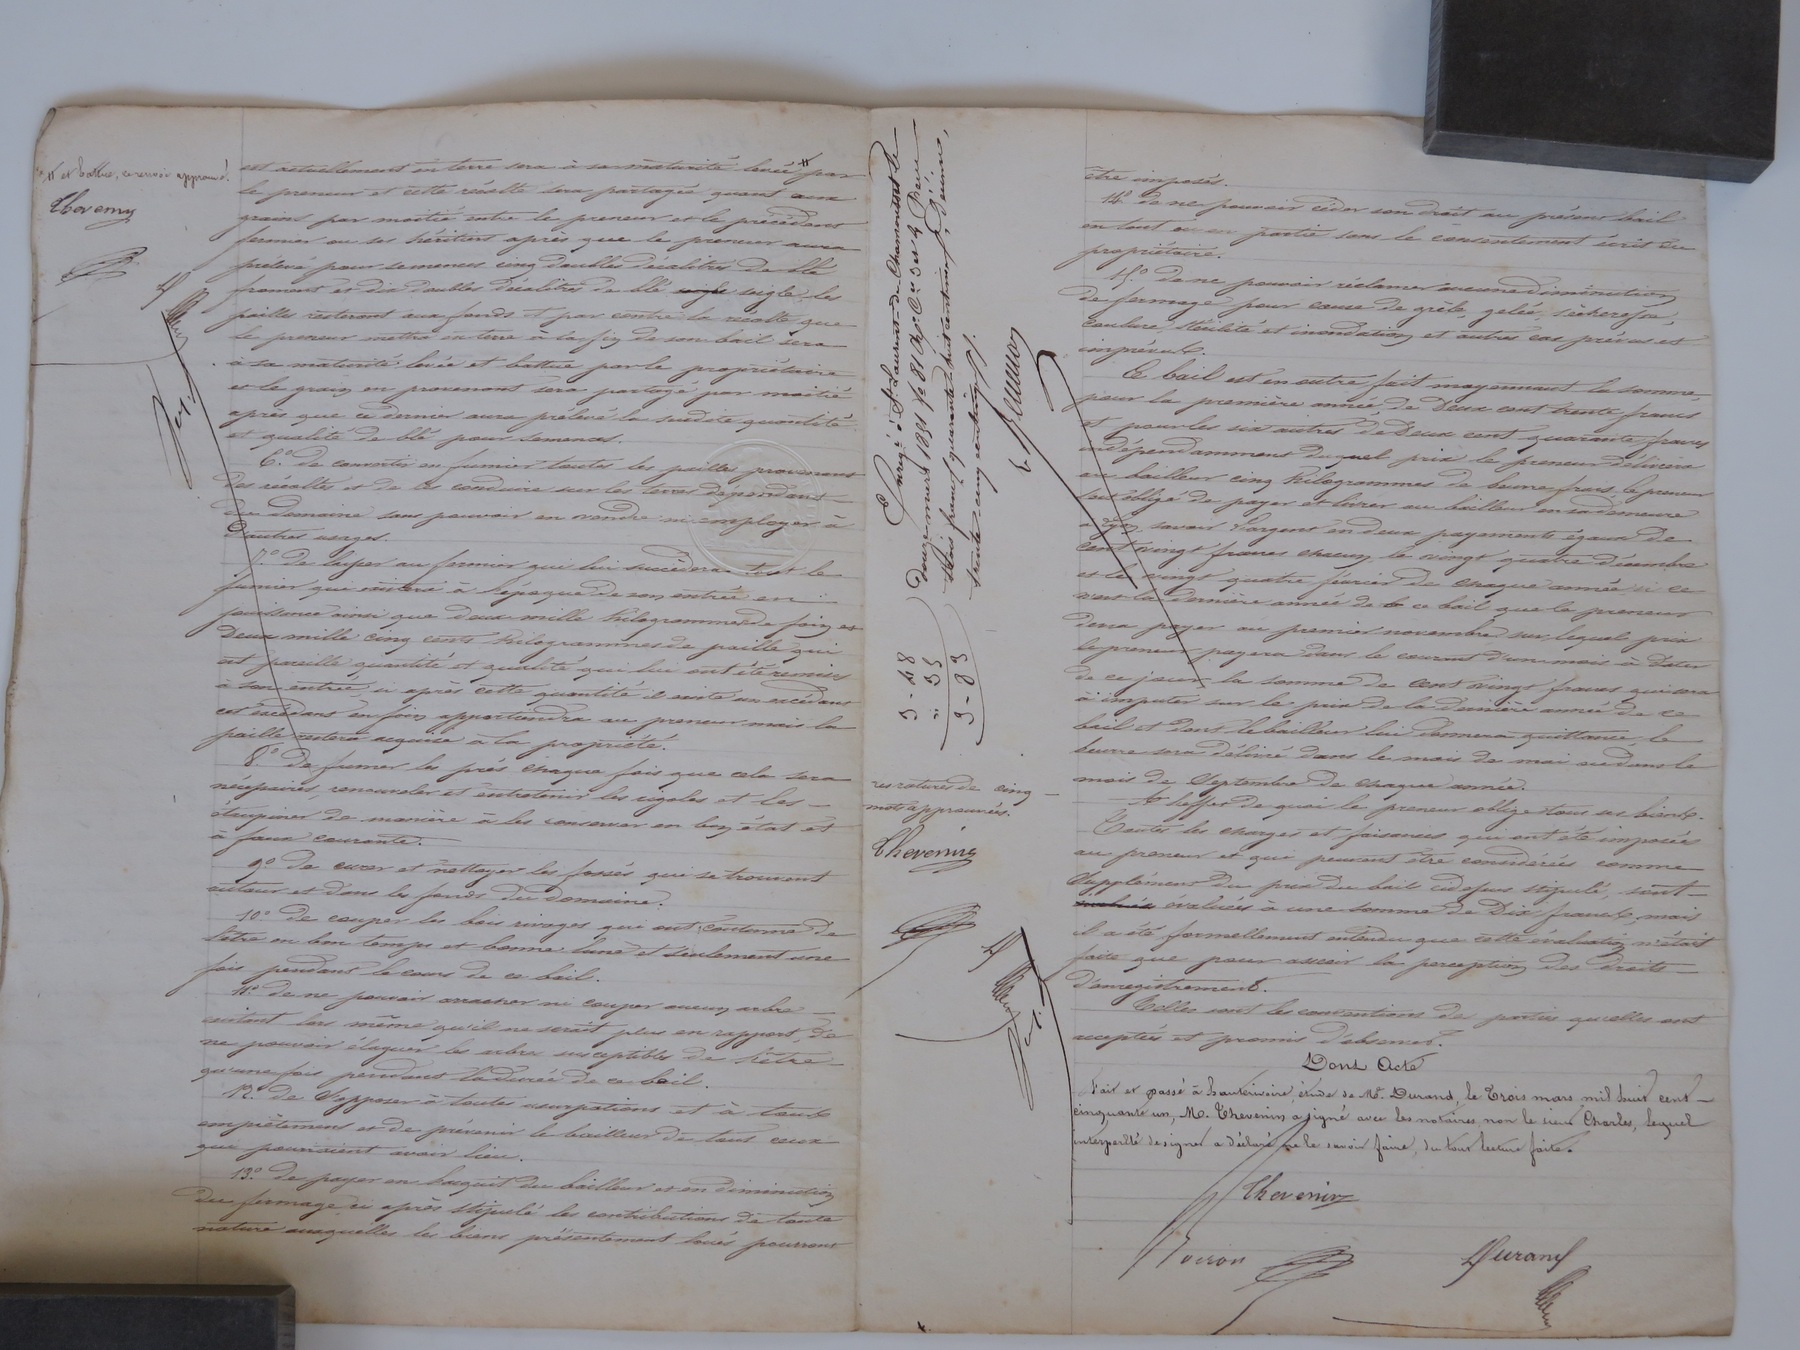 # et battue, ce renvoi approuvé.
Thevenin
est actuellement en terre sera à sa maturité levée # par
le preneur et cette récolte sera partagée quant aux
grains par moitié entre le preneur et le précédent
fermier ou ses héritiers après que le preneur aura
prélevé pour semences cinq doubles décalitres de blé
froment et dix doubles décalitres de blé seigle les
pailles resteront aux fonds et par contre la récolte que
le preneur mettra en terre à la fin de son bail sera
à sa maturité levée et battue par le propriétaire
et le grain en provenant sera partagé par moitié
après que ce dernier aura prélevé la susdite quantité
et qualité de blé pour semences.
6.° de convertir en fumier toutes les pailles provenant
des récoltes et de les conduire sur les terres dépendant
du domaine sans pouvoir en vendre ni employer à
d'autres usages.
7.° De laisser au fermier qui lui succèdera tout le
fumier qui existera à l'époque de son entrée en
jouissance ainsi que deux mille kilogrammes de foin et
Deux mille cinq cents kilogrammes de paille qui
est pareille quantité et qualité qui lui ont été remises
à son entrée, si après cette quantité il existe un excédant
cet excédant en foin appartiendra au preneur mais la
paille restera acquise à la propriété.
8.° De fumer les prés chaque fois que cela sera
nécessaire, renouveler et entretenir les rigoles et les
de manière à les conserver en bon état et
à faux courante.
9.° de curer et nettoyer les fossés qui se trouvent
autour et dans les fonds du Domaine.
10.° de couper les bois rivages qui ont coutume de
l'être en bon temps et bonne lune et seulement une
fois pendant le cours de ce bail.
11.° de ne pouvoir arracher ni couper aucun arbre
existant lors même qu'il ne serait plus en rapport, de
ne pouvoir élaguer les arbres susceptibles de l'être
qu'une fois pendant la durée de ce bail.
12.° de s'opposer à toutes usurpations et à tous
empiètements et de prévenir le bailleur de tous ceux
qui pourraient avoir lieu.
13.° de payer en l'acquit du bailleur et en diminution
du fermage ci après stipulé les contributions de toute
nature auxquelles les biens présentement loués pourront
Enregé à St. Laurent-de-Chamousset le
douze mars 1851 fo 81 Ro Cs 3 et 4 Reçu
trois francs quarante huit centimes, Décime,
trente cinq centimes.
3 - 48
" 35
3 - 83
res ratures de cinq
mots approuvées.
Thevenin
être imposés.
14.° de ne pouvoir céder son droit au présent bail
en tout ou en partie sans le consentement écrit du
propriétaire.
15.° de ne pouvoir réclamer aucune diminution
de fermage pour cause de grêle, gelée, sècheresse,
coulure, stérilité et inondation et autres cas prévus et
imprévus.
Ce bail est en outre fait moyennant la somme,
pour la première année, de Deux cent trente francs
et pour les six autres de Deux cent quarante francs
indépendamment duquel prix le preneur délivrera
au bailleur cinq kilogrammes de beurre frais, le preneur
sera obligé de payer et livrer au bailleur en sa demeure
savoir l'argent en deux payements égaux de
cent vingt francs chacun le vingt quatre Décembre
et le vingt quatre février de chaque année si ce
n'est la dernière année de ce bail que le preneur
devra payer au premier novembre sur lequel prix
le preneur payera dans le courant d'un mois à dater
de ce jour la somme de cent vingt francs qui sera
à imputer sur le prix de la dernière année de ce
bail et dont le bailleur lui donnera quittance, le
beurre sera délivré dans le mois de mai ou dans le
mois de Septembre de chaque année.
A l'effet de quoi le preneur oblige tous ses biens.
Toutes les charges et faisances qui ont été imposées
au preneur et qui peuvent être considérées comme
supplément du prix du bail ci dessus stipulé, sont
évaluées à une somme de Dix francs, mais
il a été formellement entendu que cette évaluation n'était
faite que pour asseoir la perception des droits
d'enregistrement.
Telles sont les conventions des parties qu'elles ont
acceptées et promis d'observer.
Dont Acte
Fait et passé à hauterivoire, étude de Me. Durand, le Trois mars mil huit cent
cinquante un, M. Thevenin a signé avec les notaires, non le sieur Charles, lequel
interpellé de signer a déclaré ne le savoir faire, du tout lecture faite.
Thevenin
Voiron
Durand